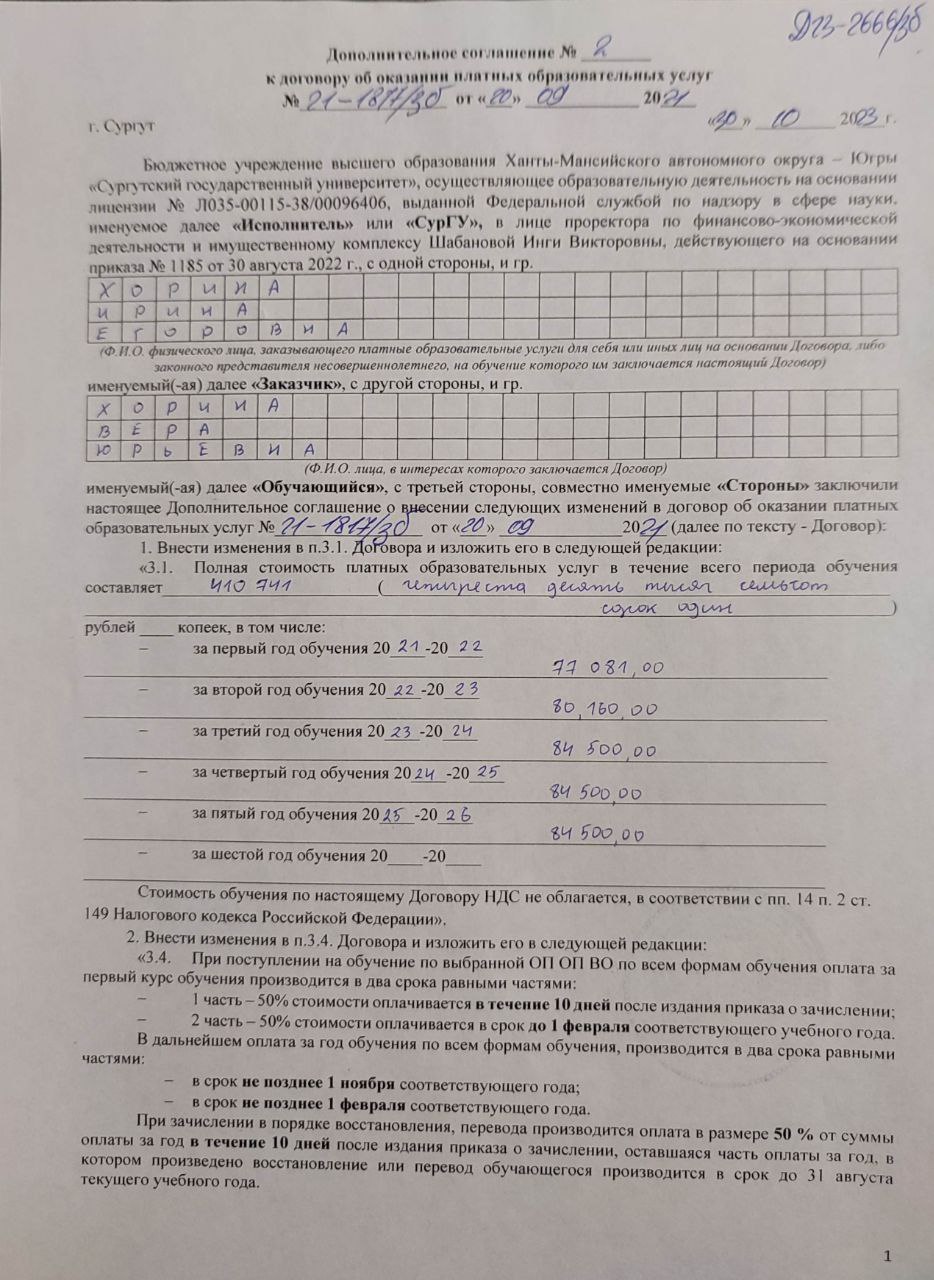 Д23-2666/зб
Дополнительное соглашение № 2
к договору об оказании платных образовательных услуг
№ 21-1817/зб от «20» 09 2021
г. Сургут «30» 10 2023 г.
Бюджетное учреждение высшего образования Ханты-Мансийского автономного округа – Югры
«Сургутский государственный университет», осуществляющее образовательную деятельность на основании
лицензии № Л035-00115-38/00096406, выданной Федеральной службой по надзору в сфере науки,
именуемое далее «Исполнитель» или «СурГУ», в лице проректора по финансово-экономической
деятельности и имущественному комплексу Шабановой Инги Викторовны, действующего на основании
приказа № 1185 от 30 августа 2022 г., с одной стороны, и гр.
ХОРИНА
ИРИНА
ЕГОРОВНА
(Ф.И.О. физического лица, заказывающего платные образовательные услуги для себя или иных лиц на основании Договора, либо
законного представителя несовершеннолетнего, на обучение которого им заключается настоящий Договор)
именуемый(-ая) далее «Заказчик», с другой стороны, и гр.
ХОРИНА
ВЕРА
ЮРЬЕВНА
(Ф.И.О. лица, в интересах которого заключается Договор)
именуемый(-ая) далее «Обучающийся», с третьей стороны, совместно именуемые «Стороны» заключили
настоящее Дополнительное соглашение о внесении следующих изменений в договор об оказании платных
образовательных услуг № 21-1817/зб от «20» 09 2021 (далее по тексту - Договор):
1. Внести изменения в п.3.1. Договора и изложить его в следующей редакции:
«3.1. Полная стоимость платных образовательных услуг в течение всего периода обучения
составляет 410 741 ( четыреста десять тысяч семьсот
сорок один )
рублей ____ копеек, в том числе:
– за первый год обучения 20 21 -20 22
77 081,00
– за второй год обучения 20 22 -20 23
80,160,00
– за третий год обучения 20 23 -20 24
84 500,00
– за четвертый год обучения 20 24 -20 25
84 500,00
– за пятый год обучения 20 25 -20 26
84 500,00
– за шестой год обучения 20____-20____
Стоимость обучения по настоящему Договору НДС не облагается, в соответствии с пп. 14 п. 2 ст.
149 Налогового кодекса Российской Федерации».
2. Внести изменения в п.3.4. Договора и изложить его в следующей редакции:
«3.4. При поступлении на обучение по выбранной ОП ОП ВО по всем формам обучения оплата за
первый курс обучения производится в два срока равными частями:
– 1 часть – 50% стоимости оплачивается в течение 10 дней после издания приказа о зачислении;
– 2 часть – 50% стоимости оплачивается в срок до 1 февраля соответствующего учебного года.
В дальнейшем оплата за год обучения по всем формам обучения, производится в два срока равными
частями:
– в срок не позднее 1 ноября соответствующего года;
– в срок не позднее 1 февраля соответствующего года.
При зачислении в порядке восстановления, перевода производится оплата в размере 50 % от суммы
оплаты за год в течение 10 дней после издания приказа о зачислении, оставшаяся часть оплаты за год, в
котором произведено восстановление или перевод обучающегося производится в срок до 31 августа
текущего учебного года.
1